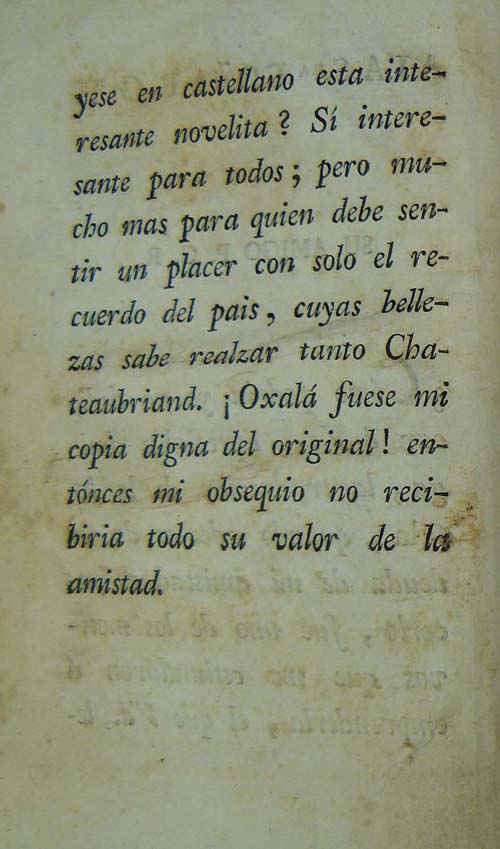 yese en castellano esta inte-
resante novelita? Sí intere-
sante para todos; pero mu-
cho mas para quien debe sen-
tir un placer con solo el re-
cuerdo del pais, cuyas belle-
zas sabe realzar tanto Cha-
teaubriand. ¡Oxalá fuese mi
copia digna del original! en-
tónces mi obsequio no reci-
biria todo su valor de la
amistad.